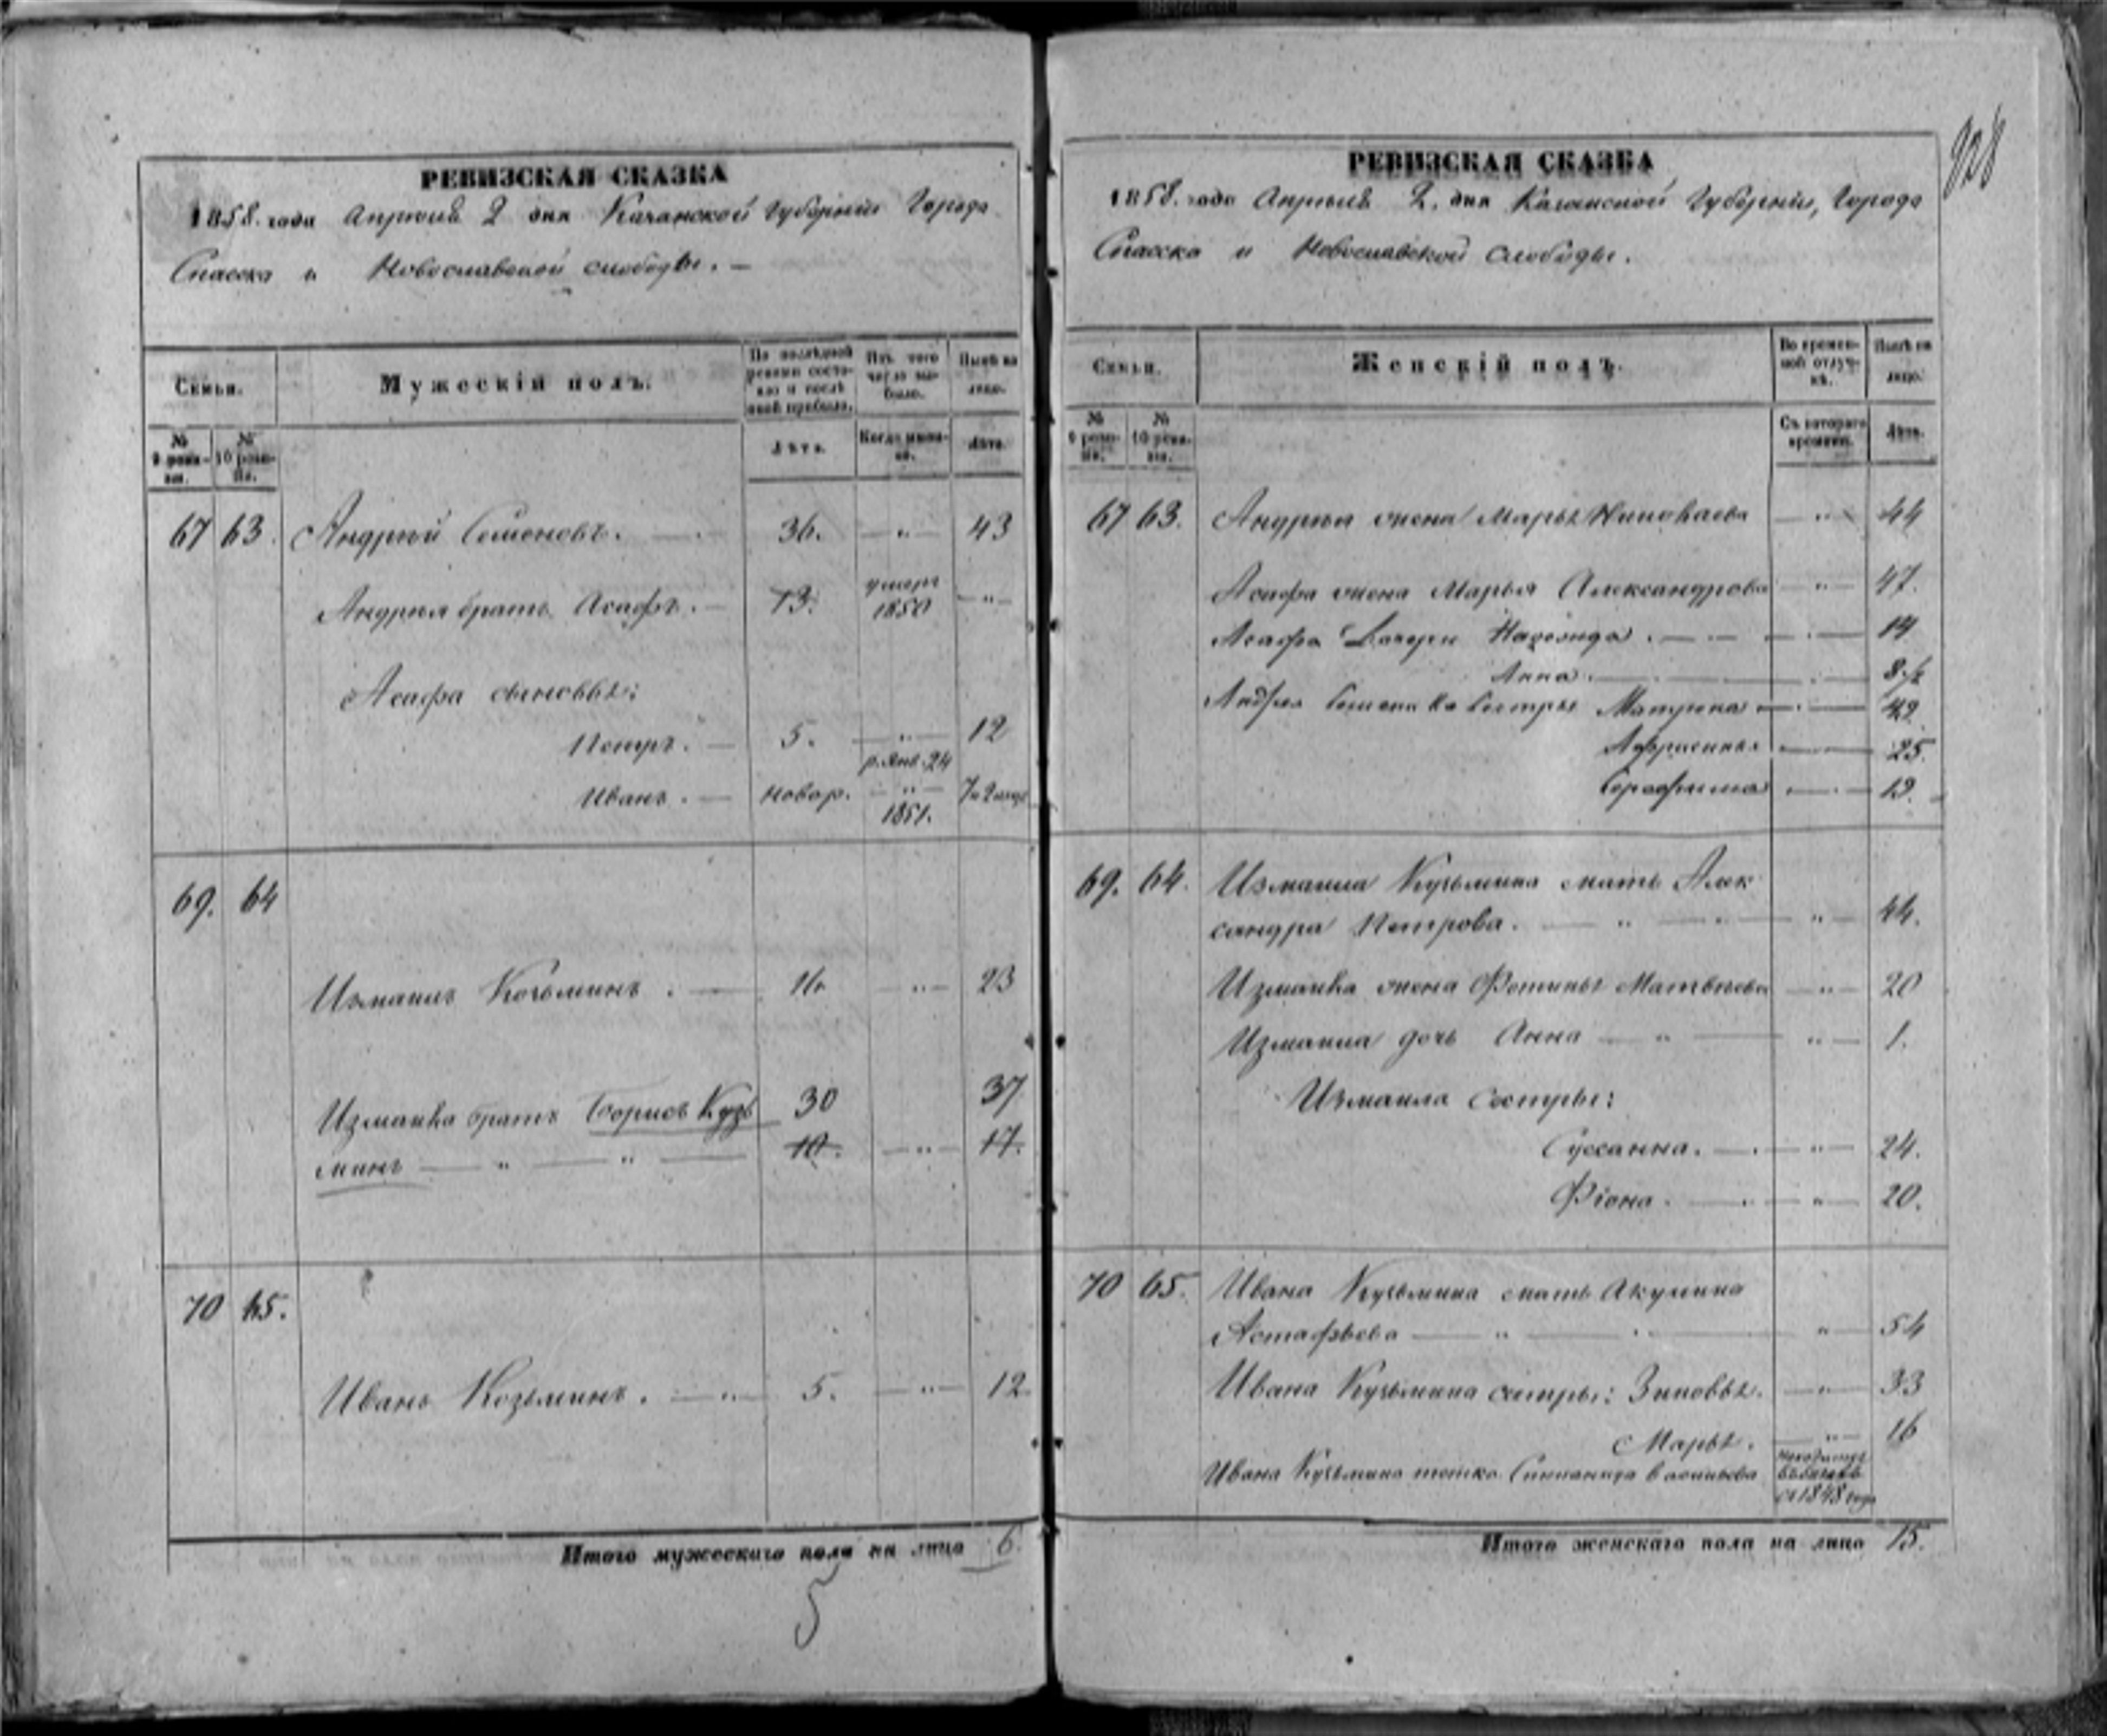 РЕВИЗСКАЯ СКАЗКА
1858. года Апрѣля 2 дня Казанской Губерніи Города
Спасска и Новоспасской слободы. —
Семьи.
Мужескій полъ.
По послѣдней ревизіи состояло и послѣ оной прибыло.
Изъ того числа выбыло.
Нынѣ на лицо.
№ 9 ревизіи.
№ 10 ревизіи.
Лѣта.
Когда именно.
Лѣта.
67 63. Андрей Семеновъ. — 36. — " — 43
Андрея братъ Асафъ. — 13. умеръ 1850 — " —
Асафа сыновья:
Петръ. — 5. — " — 12
Иванъ. — новор. р. Янв. 24 — " — 1851. 7 и 2 мѣс
69. 64
Измаилъ Козьминъ. — 16 — " — 23
Измаила братъ Борисъ Кузь 30 37
минъ — " — " — 10. — " — 17.
70 65.
Иванъ Козьминъ. — " — 5. — " — 12
Итого мужескаго пола на лицо 6.
5
928
РЕВИЗСКАЯ СКАЗКА
1858. года Апрѣля 2. дня Казанской Губерніи, Города
Спасска и Новоспасской слободы.
Семьи.
Женскій полъ.
Во временной отлучкѣ.
Нынѣ на лицо.
№ 9 ревизіи.
№ 10 ревизіи.
Съ котораго времени.
Лѣта.
67 63. Андрея жена Марья — " — 44
Асафа жена Марья Александрова — " — 47.
Асафа дочери Надежда. — 14
Анна. — 8 ½
Андрея Семенова сестры Матрена — 42
Афросинья — 25.
Серафима — 19.
69. 64. Измаила Кузьмина мать Алек
сандра Петрова. — " — " — 44.
Измаила жена Фотинья Матвѣева — " — 20
Измаила дочь Анна — " — " — 1.
Измаила сестры:
Суссанна. — " — 24.
Фіона. — " — 20.
70 65. Ивана Кузьмина мать Акулина
Астафьева — " — " — 54
Ивана Кузьмина сестры: Зиновья. — " — 33
Марья. — " — 16
Ивана Кузьмина тетка Васильева находится въ бѣгахъ съ 1848 года
Итого женскаго пола на лицо 15.